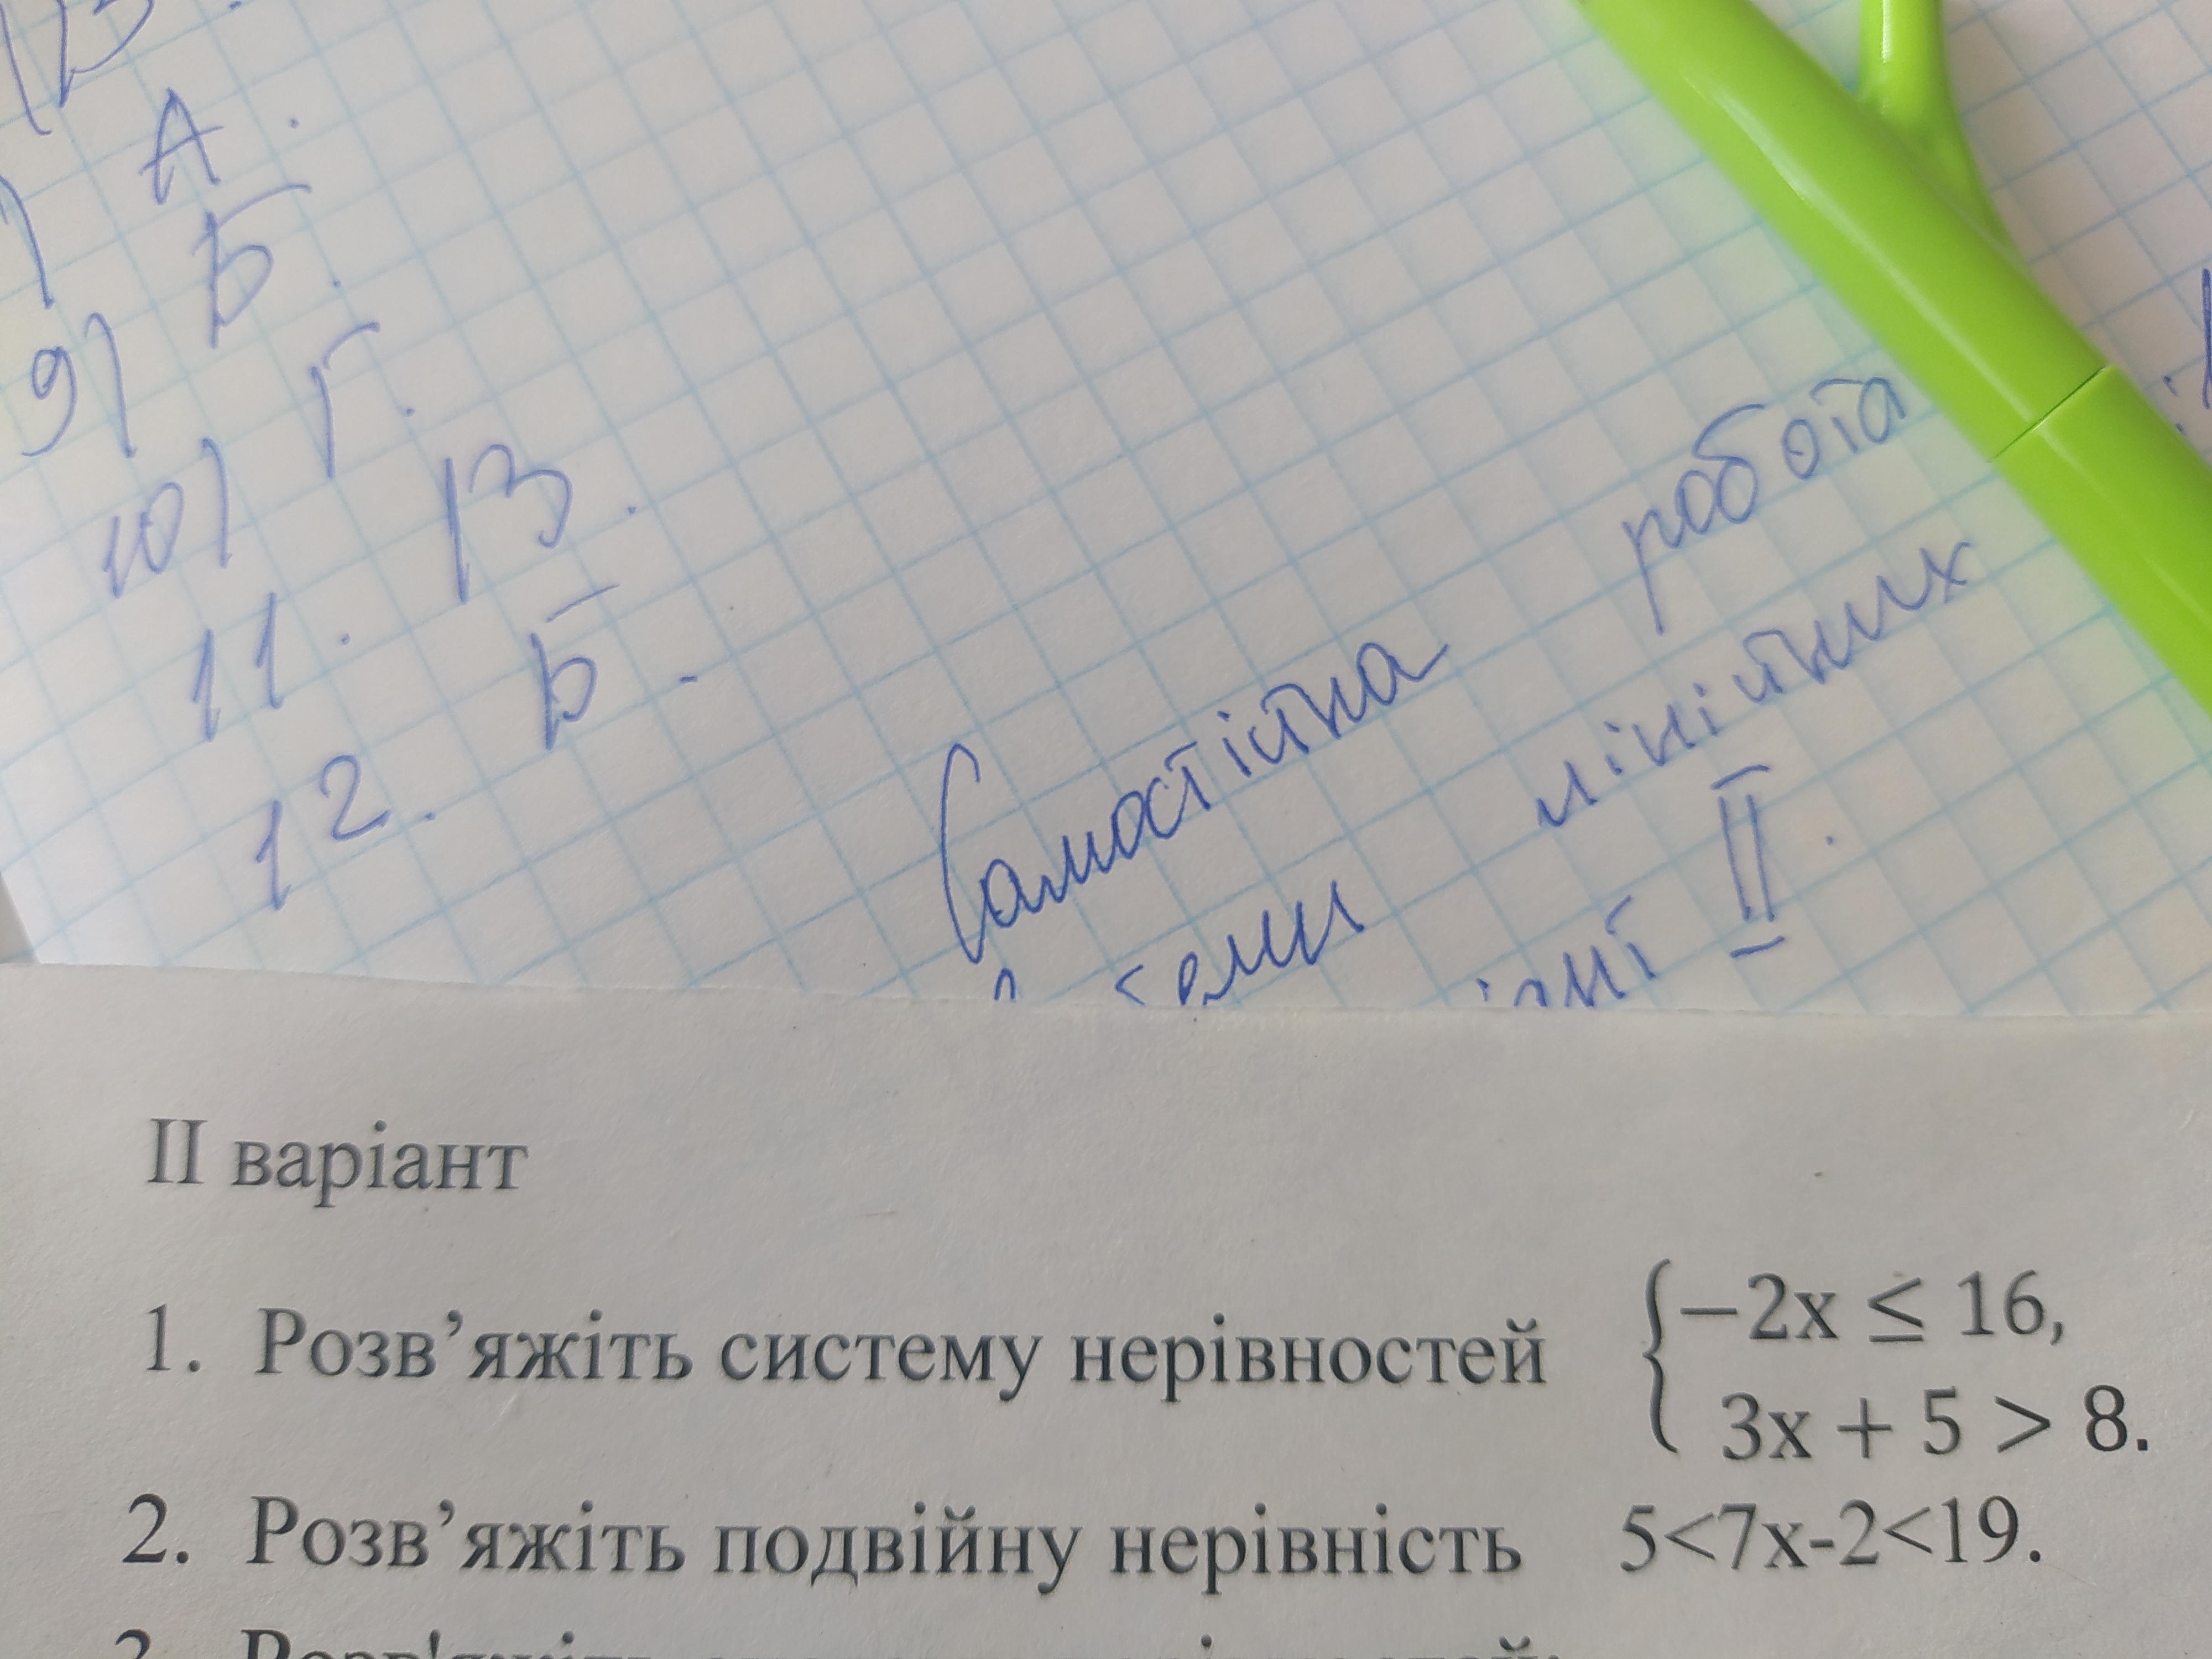 В.
А.
9) Б.
10) Г.
11. В.
12. Б.
Самостійна робота
лінійних
II.
II варіант
1. Розв’яжіть систему нерівностей {−2x ≤ 16,
3x + 5 > 8.
2. Розв’яжіть подвійну нерівність 5<7x-2<19.
3. Розв'яжіть